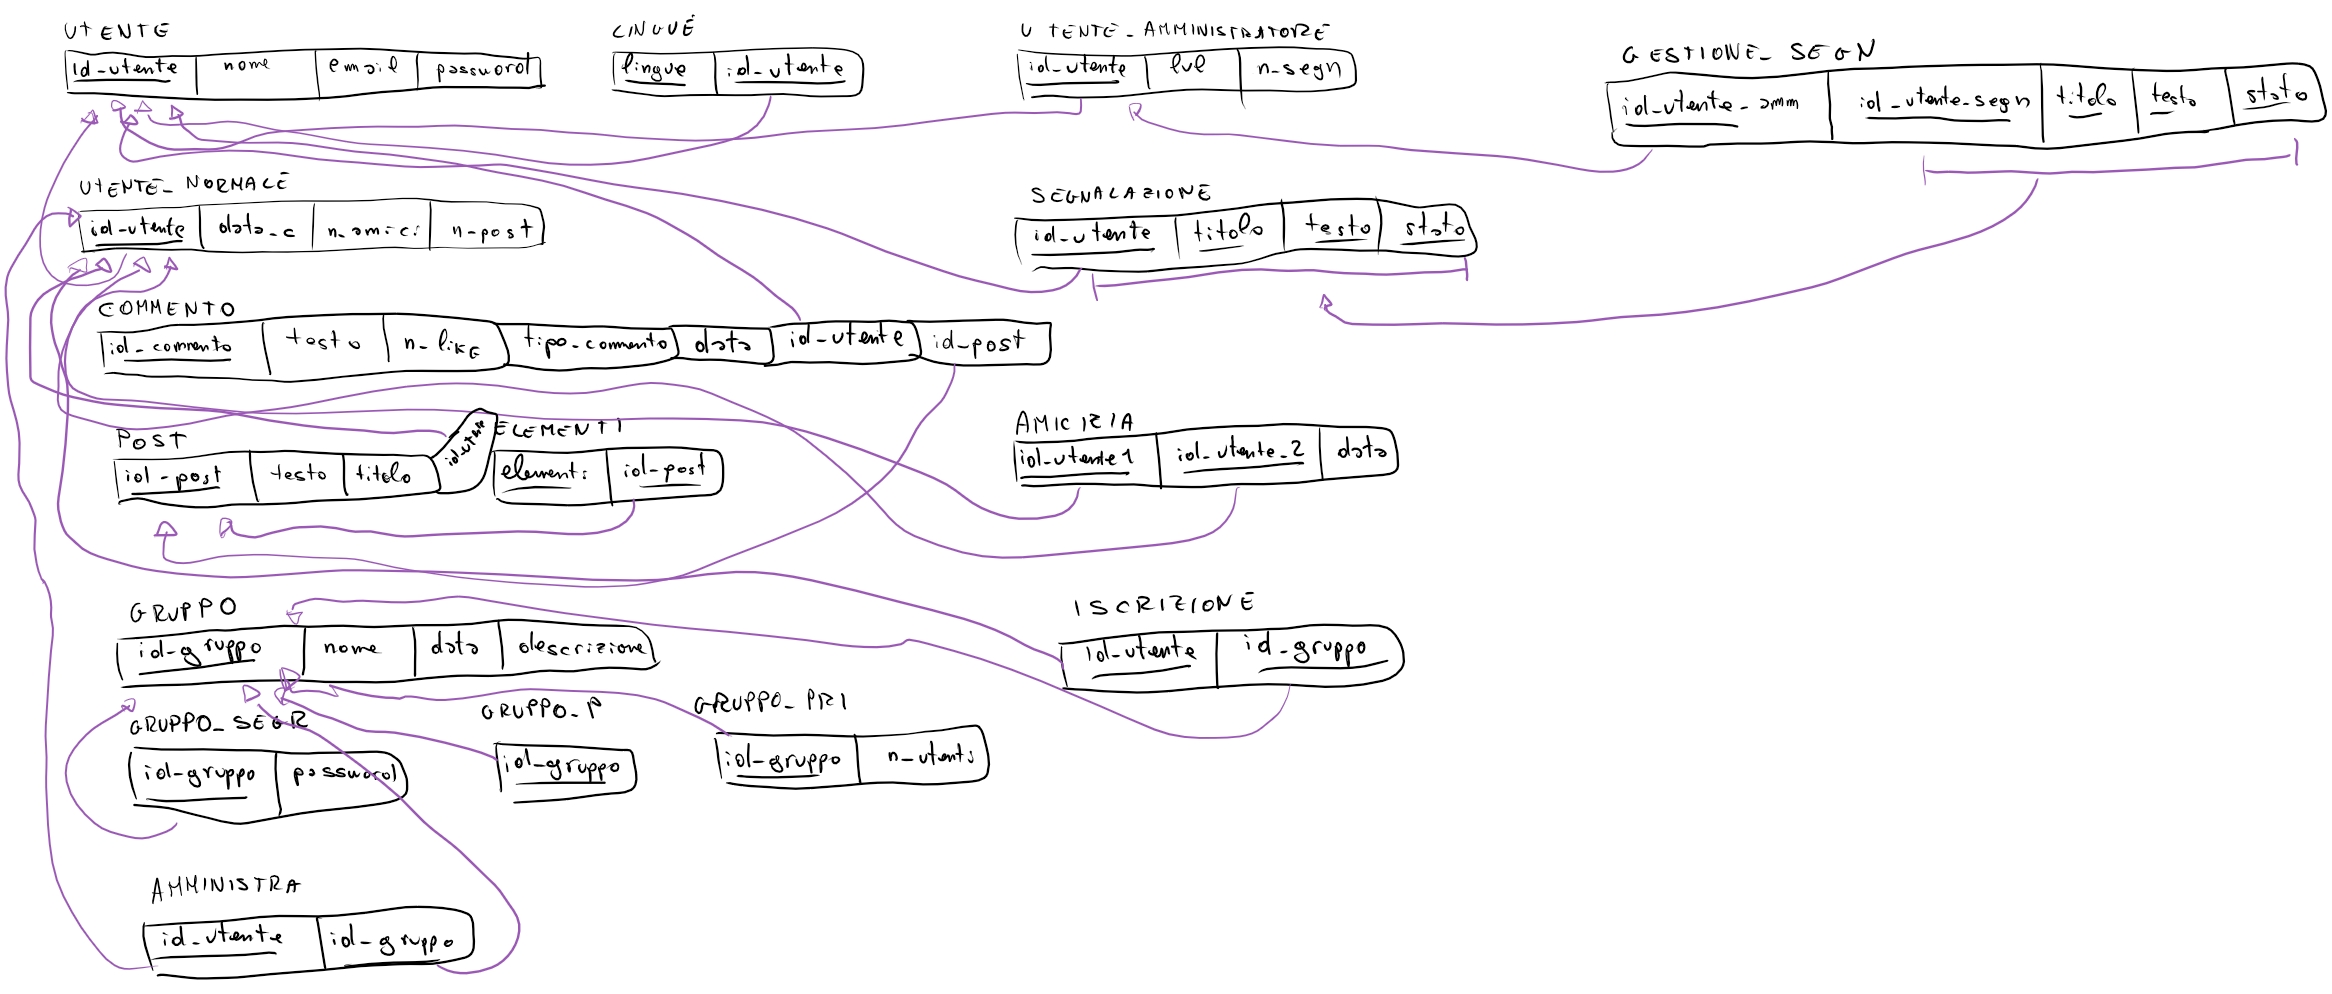 UTENTE
id-utente nome email password
LINGUE
lingue id-utente
UTENTE_AMMINISTRATORE
id-utente lvl n-segn
GESTIONE_SEGN
id-utente-amm id-utente-segn titolo testo stato
UTENTE_NORMALE
id-utente data-c n-amici n-post
SEGNALAZIONE
id-utente titolo testo stato
COMMENTO
id-commento testo n-like tipo-commento data id-utente id-post
POST
id-post testo titolo id-utente
ELEMENTI
elementi id-post
AMICIZIA
id-utente1 id-utente-2 data
GRUPPO
id-gruppo nome data descrizione
ISCRIZIONE
id-utente id-gruppo
GRUPPO_SEGR
id-gruppo password
GRUPPO_P
id-gruppo
GRUPPO_PRI
id-gruppo n-utenti
AMMINISTRA
id-utente id-gruppo